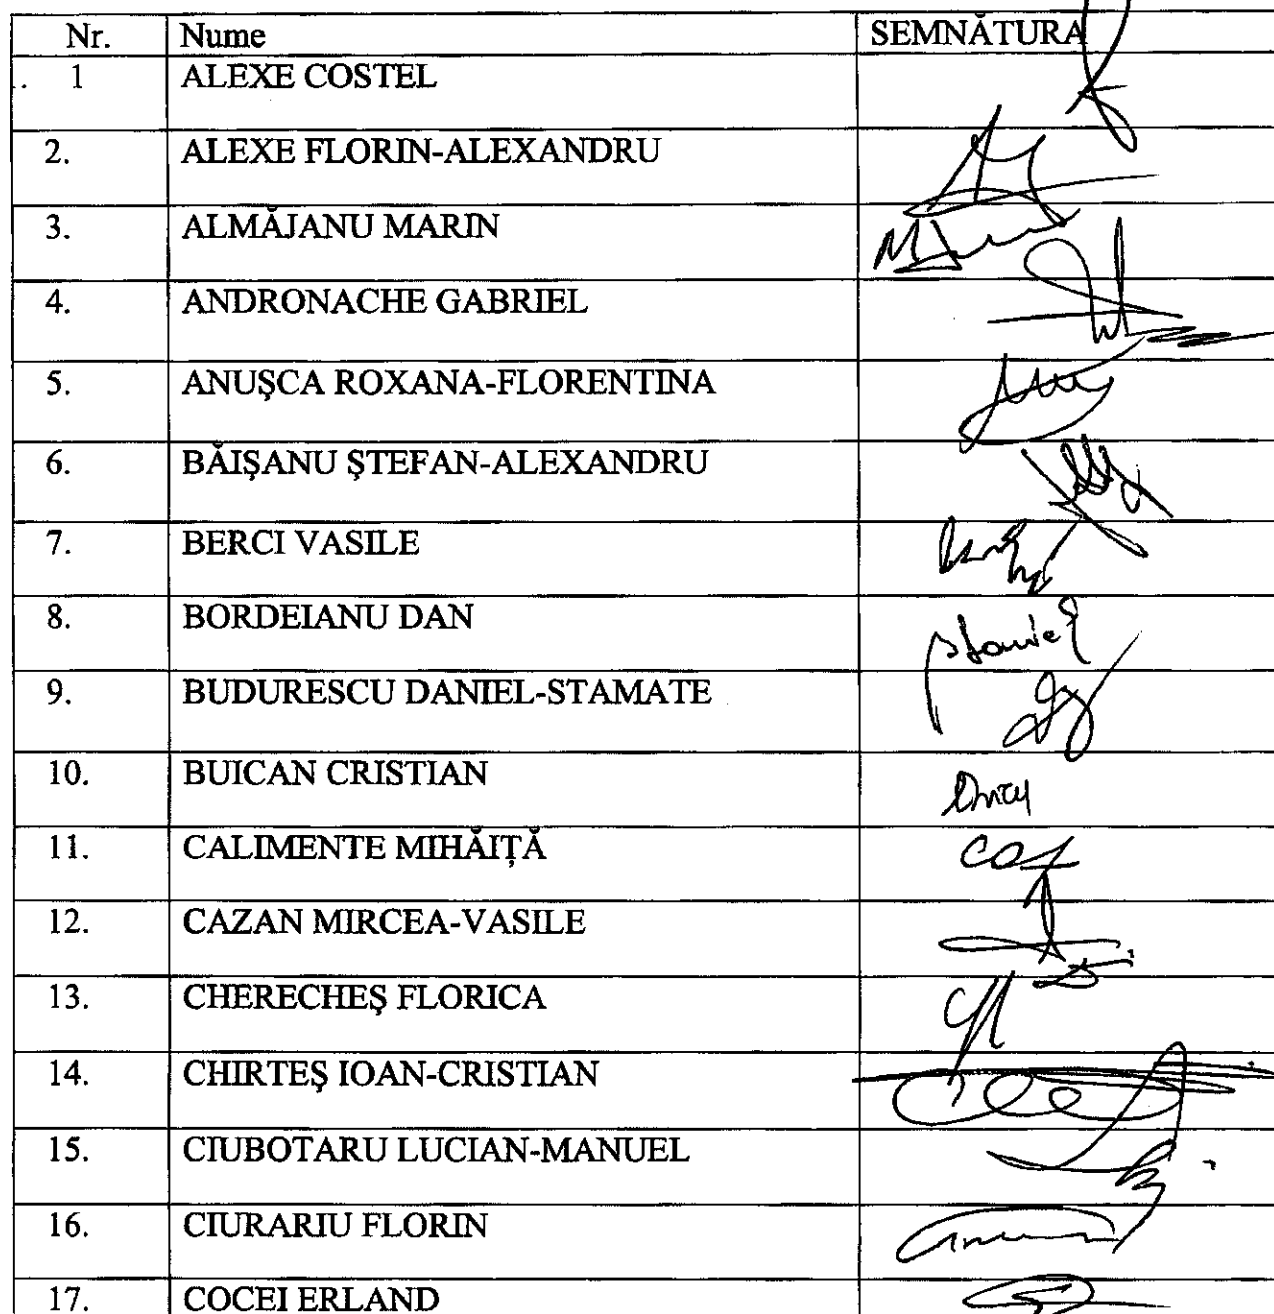 Nr. Nume SEMNĂTURA
1 ALEXE COSTEL
2. ALEXE FLORIN-ALEXANDRU
3. ALMĂJANU MARIN
4. ANDRONACHE GABRIEL
5. ANUŞCA ROXANA-FLORENTINA
6. BĂIŞANU ŞTEFAN-ALEXANDRU
7. BERCI VASILE
8. BORDEIANU DAN
9. BUDURESCU DANIEL-STAMATE
10. BUICAN CRISTIAN
11. CALIMENTE MIHĂIŢĂ
12. CAZAN MIRCEA-VASILE
13. CHERECHEŞ FLORICA
14. CHIRTEŞ IOAN-CRISTIAN
15. CIUBOTARU LUCIAN-MANUEL
16. CIURARIU FLORIN
17. COCEI ERLAND